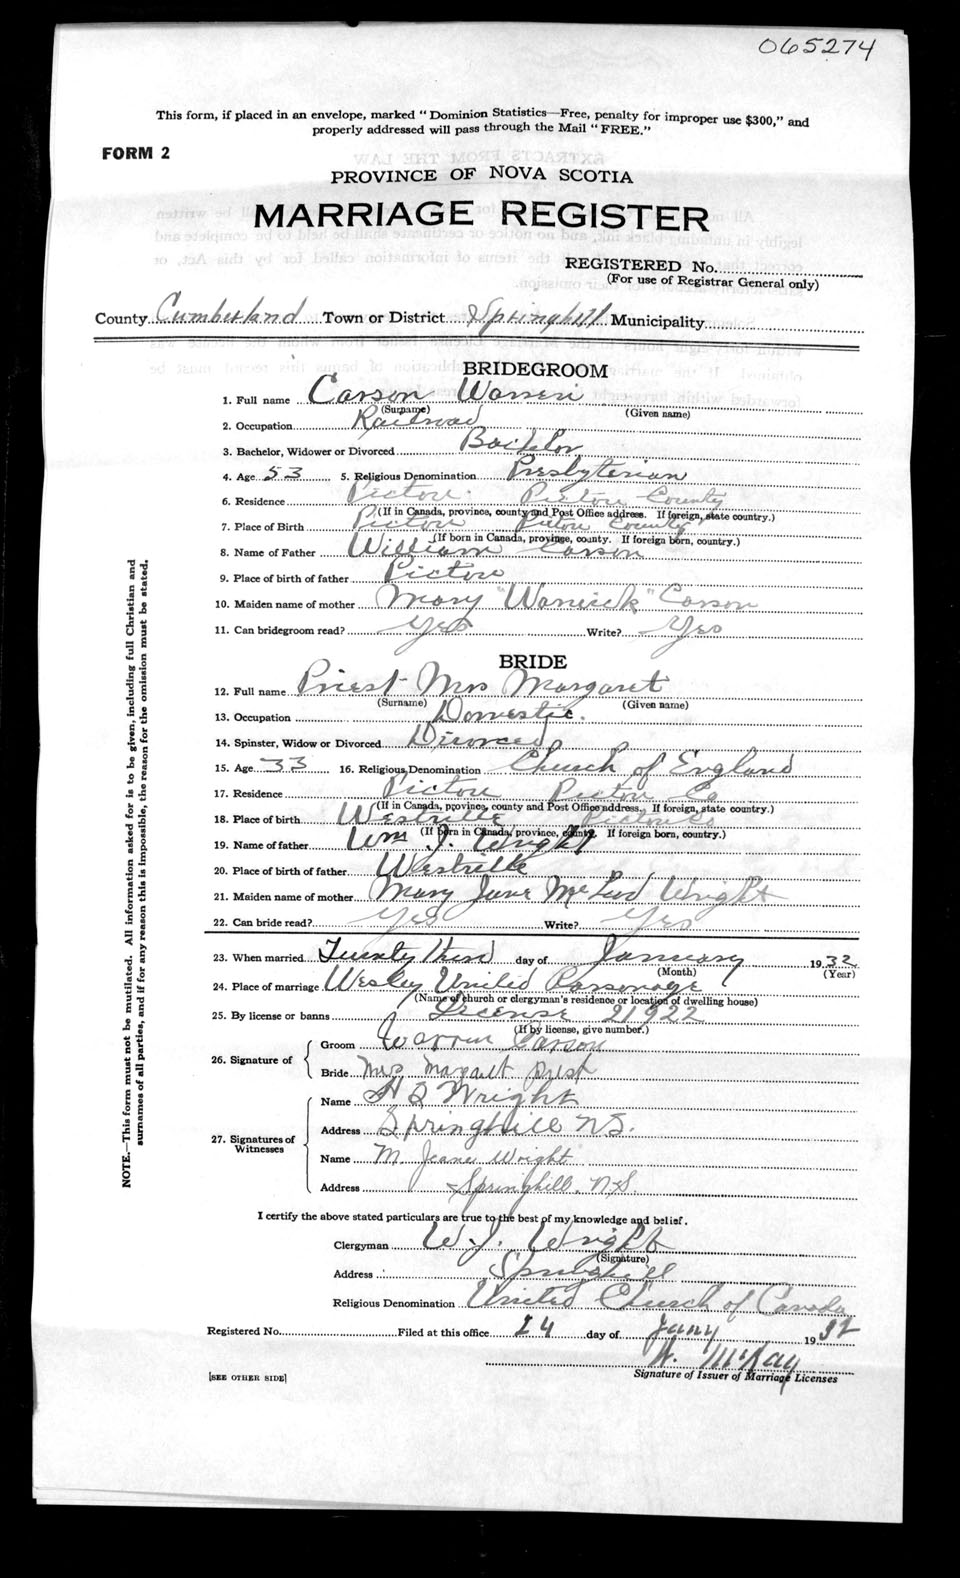 065274
This form, if placed in an envelope, marked "Dominion Statistics—Free, penalty for improper use $300," and
properly addressed will pass through the Mail "FREE."
FORM 2
PROVINCE OF NOVA SCOTIA
MARRIAGE REGISTER
REGISTERED No.
(For use of Registrar General only)
County Cumberland Town or District Springhill Municipality
BRIDEGROOM
1. Full name Carson Warren
(Surname) (Given name)
2. Occupation Railroad
3. Bachelor, Widower or Divorced Bachelor
4. Age 53 5. Religious Denomination Presbyterian
6. Residence Pictou. Pictou County
(If in Canada, province, county and Post Office address. If foreign, state country.)
7. Place of Birth Pictou Pictou County
(If born in Canada, province, county. If foreign born, country.)
8. Name of Father William Carson
9. Place of birth of father Pictou
10. Maiden name of mother Mary "Warrick" Carson
11. Can bridegroom read? Yes Write? Yes
BRIDE
12. Full name Priest Mrs Margaret
(Surname) (Given name)
13. Occupation Domestic.
14. Spinster, Widow or Divorced Divorced
15. Age 33 16. Religious Denomination Church of England
17. Residence Pictou Pictou Co
(If in Canada, province, county and Post Office address. If foreign, state country.)
18. Place of birth Westville Pictou Co
(If born in Canada, province, county. If foreign born, country.)
19. Name of father Wm J. Wright
20. Place of birth of father Westville
21. Maiden name of mother Mary Jane McLeod Wright
22. Can bride read? Yes Write? Yes
23. When married Twenty third day of January 1932
(Month) (Year)
24. Place of marriage Wesley United Parsonage
(Name of church or clergyman's residence or location of dwelling house)
25. By license or banns License 21922
(If by license, give number.)
26. Signature of
Groom Warren Carson
Bride Mrs Margaret Prest
27. Signatures of Witnesses
Name H Wright
Address Springhill NS.
Name M. Jean Wright
Address Springhill. N.S.
I certify the above stated particulars are true to the best of my knowledge and belief.
Clergyman W. J. Wright
(Signature)
Address Springhill
Religious Denomination United Church of Canada
Registered No. Filed at this office 24 day of Jany 1932
W. McKay
Signature of Issuer of Marriage Licenses
[SEE OTHER SIDE]
NOTE.—This form must not be mutilated. All information asked for is to be given, including full Christian and
surnames of all parties, and if for any reason this is impossible, the reason for the omission must be stated.